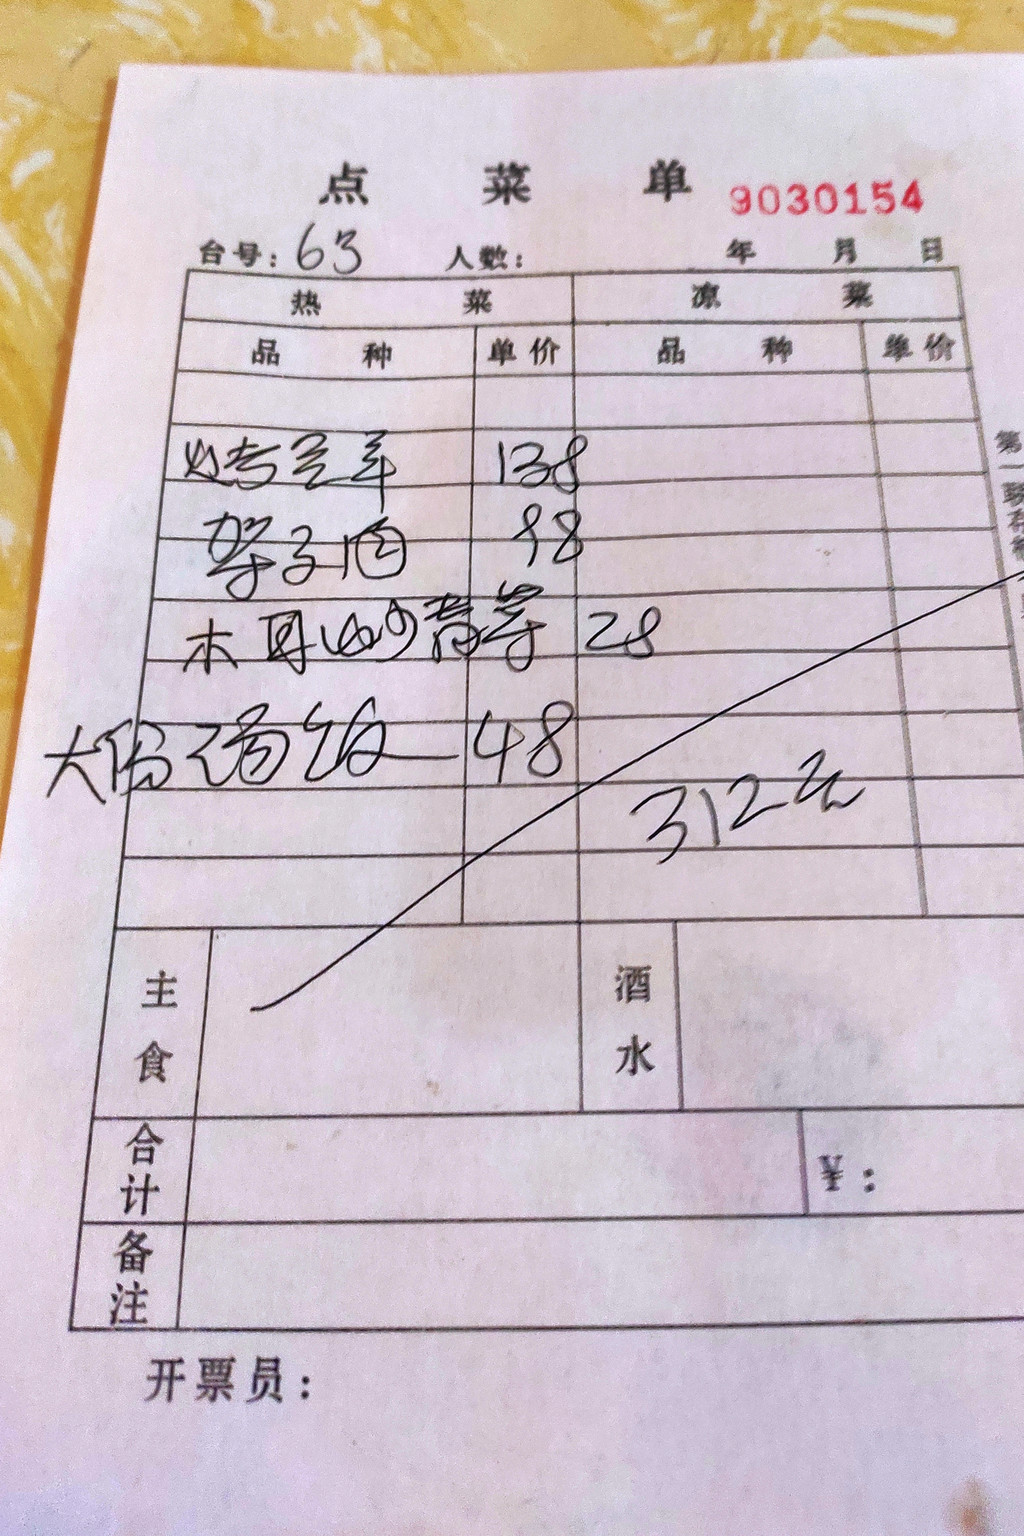 点 菜 单 9030154
台号: 63 人数: 年 月 日
热 菜 凉 菜
品 种 单价 品 种 单价
烤羊 138
架子肉 98
木耳炒 28
大份 饭 48
312元
主食 酒水
合计 ¥:
备注
开票员:
第一联存